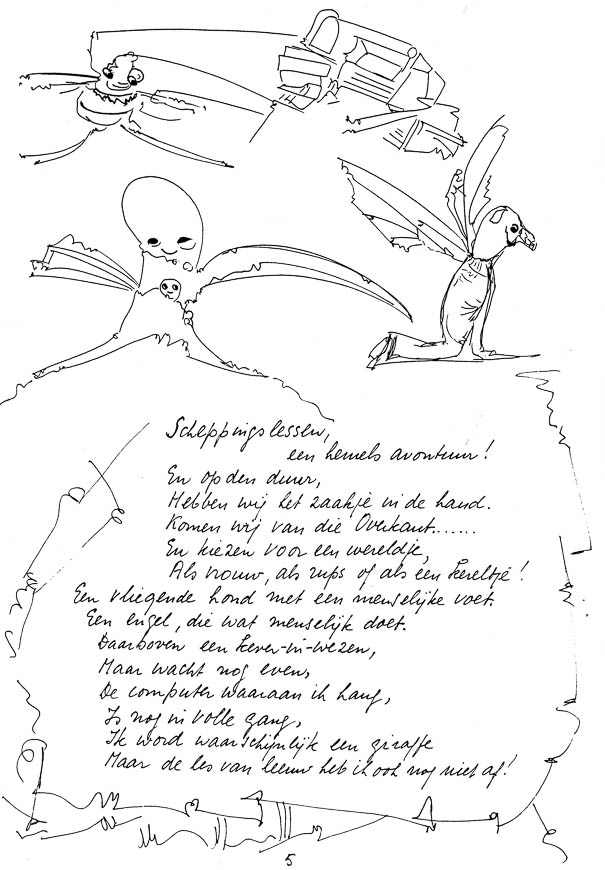 Scheppingslessen,
een hemels avontuur!
En op den duur,
Hebben wij het zaakje in de hand.
Komen wij van die Overkant......
En kiezen voor een wereldje,
Als vrouw, als rups of als een kereltje!
Een vliegende hond met een menselijke voet.
Een engel, die wat menselijk doet.
Daarboven een kever-in-wezen,
Maar wacht nog even,
De computer waaraan ik hang,
Is nog in volle gang,
Ik word waarschijnlijk een giraffe
Maar de les van leeuw heb ik ook nog niet af!
5